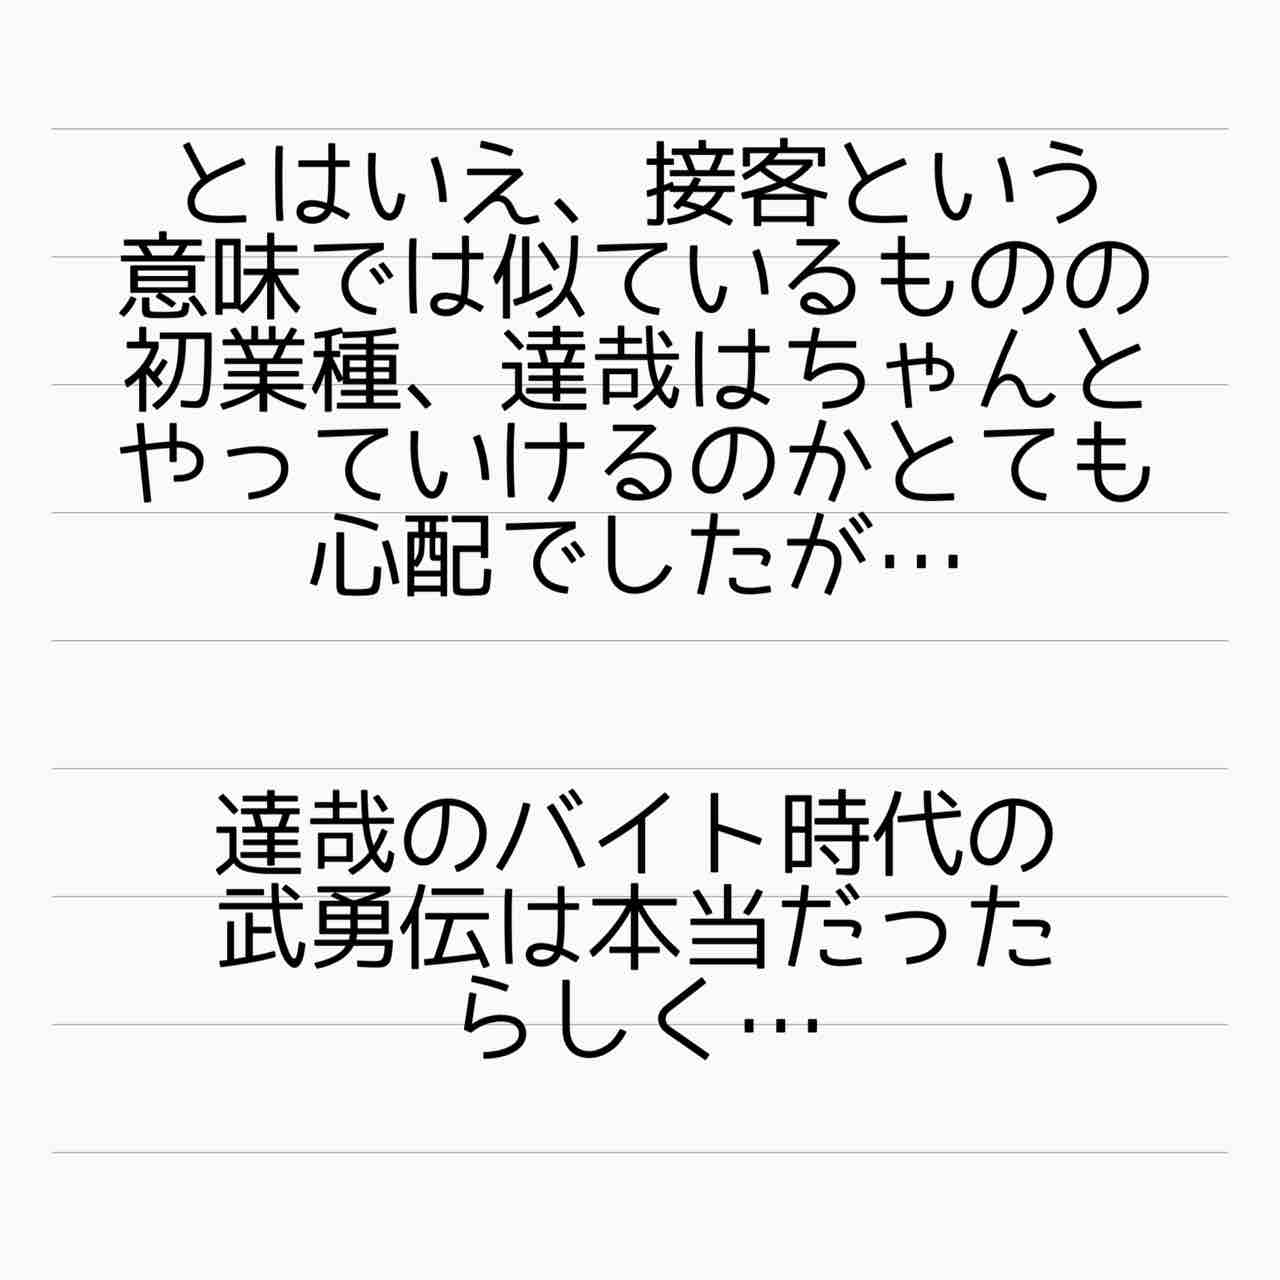 とはいえ、接客という
意味では似ているものの
初業種、達哉はちゃんと
やっていけるのかとても
心配でしたが…
達哉のバイト時代の
武勇伝は本当だった
らしく…